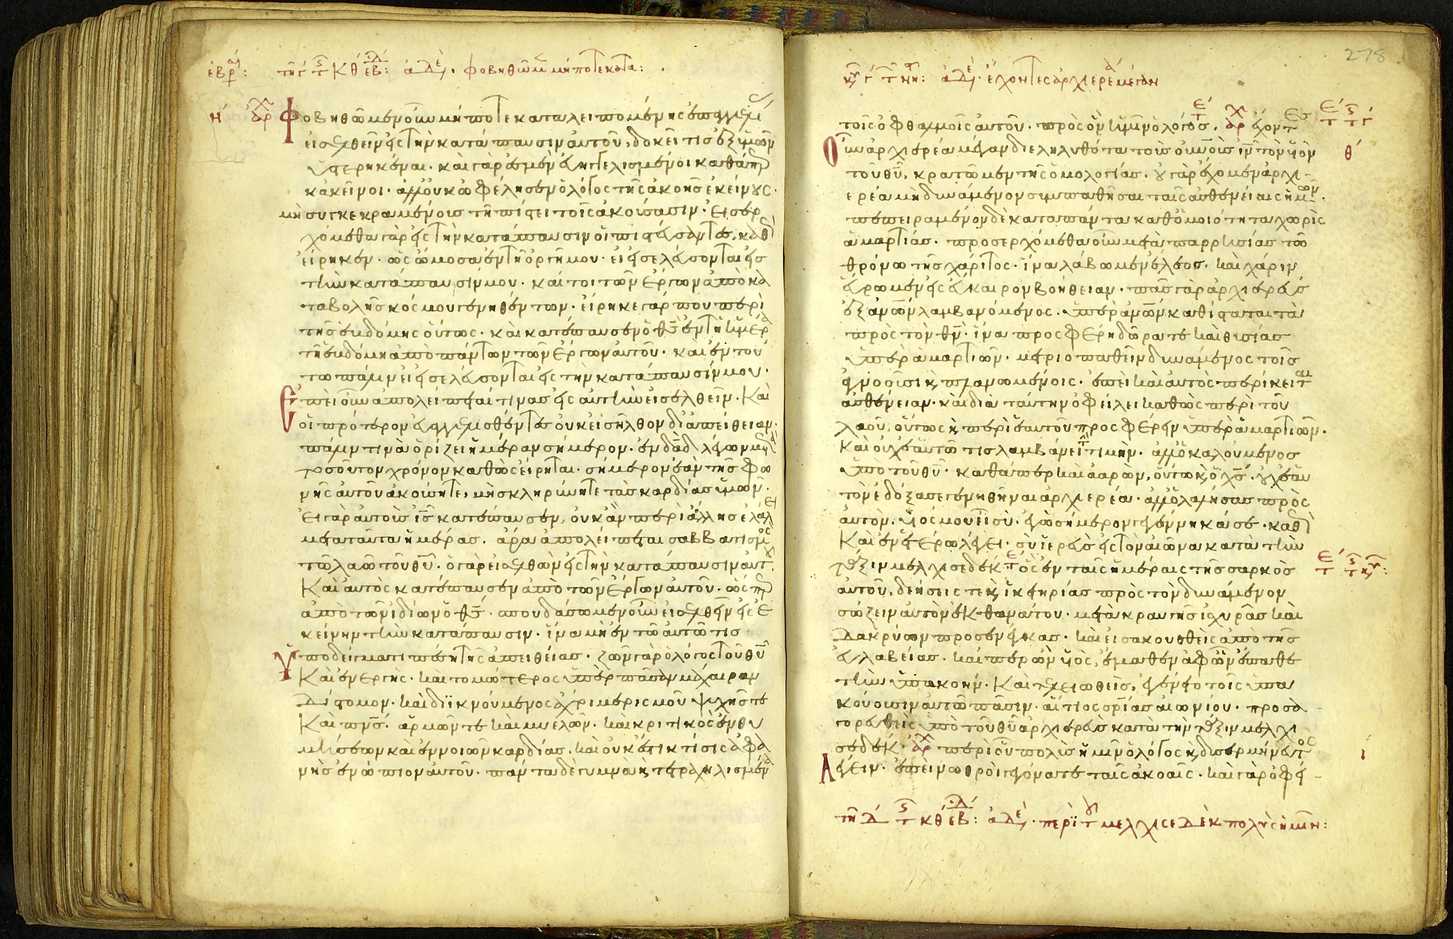 ἑβρ: τῆς κθ ἑβ: ἀδε. φοβηθῶμεν μήποτε κατα:
η ἀρχ Φοβηθῶμεν οὖν μήποτε καταλειπομένης ἐπαγγελί
εἰσελθεῖν εἰς τὴν κατάπαυσιν αὐτοῦ, δοκεῖ τις ἐξ ὑμῶν
ὑστερηκέναι. καὶ γάρ ἐσμεν εὐηγγελισμένοι καθάπερ
κἀκεῖνοι. ἀλλ' οὐκ ὠφέλησεν ὁ λόγος τῆς ἀκοῆς ἐκείνους.
μὴ συγκεκραμένους τῇ πίστει τοῖς ἀκούσασιν. Εἰσερ
χόμεθα γὰρ εἰς τὴν κατάπαυσιν οἱ πιστεύσαντες, καθ
εἴρηκεν. ὡς ὤμοσα ἐν τῇ ὀργῇ μου. εἰ εἰσελεύσονται εἰς
τὴν κατάπαυσίν μου. καίτοι τῶν ἔργων ἀπὸ κα
ταβολῆς κόσμου γενηθέντων. εἴρηκε γάρ που περὶ
τῆς ἑβδόμης οὕτως. καὶ κατέπαυσεν ὁ θς ἐν τῇ ἡμέρα
τῇ ἑβδόμῃ ἀπὸ πάντων τῶν ἔργων αὐτοῦ. καὶ ἐν τού
τω πάλιν εἰ εἰσελεύσονται εἰς τὴν κατάπαυσίν μου.
Ἐπεὶ οὖν ἀπολείπεται τινὰς εἰς αὐτὴν εἰσελθεῖν. Καὶ
οἱ πρότερον εὐαγγελισθέντες οὐκ εἰσῆλθον δι' ἀπείθειαν.
πάλιν τινὰ ὁρίζει ἡμέραν σήμερον. ἐν δαδ λέγων μετὰ
τοσοῦτον χρόνον καθὼς εἴρηται. σήμερον ἐὰν τῆς φω
νῆς αὐτοῦ ἀκούσητε, μὴ σκληρύνητε τὰς καρδίας ὑμῶν.
Εἰ γὰρ αὐτοὺς ις κατέπαυσεν, οὐκ ἂν περὶ ἄλλης ἐλάλει
μετὰ ταῦτα ἡμέρας. ἄρα ἀπολείπεται σαββατισμὸς
τῷ λαῷ τοῦ θυ. ὁ γὰρ εἰσελθὼν εἰς τὴν κατάπαυσιν αὐτ
Καὶ αὐτὸς κατέπαυσεν ἀπὸ τῶν ἔργων αὐτοῦ. ὥσπερ
ἀπὸ τῶν ἰδίων ὁ θς. σπουδάσωμεν οὖν εἰσελθεῖν εἰς ἐ
κείνην τὴν κατάπαυσιν. ἵνα μὴ ἐν τῷ αὐτῷ τις
Ὑποδείγματι πέσῃ τῆς ἀπειθείας. ζῶν γὰρ ὁ λόγος τοῦ θυ
Καὶ ἐνεργής. καὶ τομώτερος ὑπὲρ πᾶσαν μάχαιραν
Δίστομον. καὶ διϊκνούμενος ἄχρι μερισμοῦ ψυχῆς τε
Καὶ πνς. ἁρμῶν τε καὶ μυελῶν. καὶ κριτικὸς ἐνθυ
μήσεων καὶ ἐννοιῶν καρδίας. καὶ οὐκ ἔστι κτίσις ἀφα
νὴς ἐνώπιον αὐτοῦ. πάντα δὲ γυμνὰ καὶ τετραχηλισμένα
278
ἀδε. ἔχοντες ἀρχιερέα μέγαν
τοῖς ὀφθαλμοῖς αὐτοῦ. πρὸς ὃν ἡμῖν ὁ λόγος. ἀρχ ἔχοντ
Οὖν ἀρχιερέα μέγαν διεληλυθότα τοὺς οὐνους ιν τὸν υον θ
τοῦ θυ, κρατῶμεν τῆς ὁμολογίας. οὐ γὰρ ἔχομεν ἀρχι
ερέα μὴ δυνάμενον συμπαθῆσαι ταῖς ἀσθενείαις ἡμῶν.
πεπειραμένον δὲ κατὰ πάντα καθ' ὁμοιότητα χωρὶς
ἁμαρτίας. προσερχόμεθα οὖν μετὰ παρρησίας τῷ
θρόνω τῆς χάριτος. ἵνα λάβωμεν ἔλεος. καὶ χάριν
εὕρωμεν εἰς εὔκαιρον βοήθειαν. πᾶς γὰρ ἀρχιερεὺς
ἐξ ἀνων λαμβανόμενος. ὑπὲρ ἀνων καθίσταται τὰ
πρὸς τὸν θν. ἵνα προσφέρῃ δῶρά τε καὶ θυσίας
ὑπὲρ ἁμαρτιῶν. μετριοπαθεῖν δυνάμενος τοῖς
ἀγνοοῦσι καὶ πλανωμένοις. ἐπεὶ καὶ αὐτὸς περίκειται
ἀσθένειαν. καὶ διὰ ταύτην ὀφείλει καθὼς περὶ τοῦ
λαοῦ, οὕτως καὶ περὶ ἑαυτοῦ προσφέρειν ὑπὲρ ἁμαρτιῶν.
Καὶ οὐχ ἑαυτῷ τις λαμβάνει τιμήν. ἀλλ' ὁ καλούμενος
ὑπὸ τοῦ θυ. καθάπερ καὶ ἀαρών, οὕτω καὶ ὁ χς. οὐχ ἑαυ
τὸν ἐδόξασε γενηθῆναι ἀρχιερέα. ἀλλ' ὁ λαλήσας πρὸς
αὐτόν. υἱός μου εἶ σύ. ἐγὼ σήμερον γεγέννηκά σε. καθὼ
Καὶ ἐν ἑτέρω λέγει. σὺ ἱερεὺς εἰς τὸν αἰῶνα κατὰ τὴν
τάξιν μελχισεδέκ ὃς ἐν ταῖς ἡμέραις τῆς σαρκὸς
αὐτοῦ, δεήσεις τε καὶ ἱκετηρίας πρὸς τὸν δυνάμενον
σώζειν αὐτὸν ἐκ θανάτου. μετὰ κραυγῆς ἰσχυρᾶς καὶ
Δακρύων προσενέγκας. καὶ εἰσακουσθεὶς ἀπὸ τῆς
εὐλαβείας. καίπερ ὢν υἱός, ἔμαθεν ἀφ' ὧν ἔπαθε
τὴν ὑπακοήν. Καὶ τελειωθείς, ἐγένετο τοῖς ὑπα
κούουσιν αὐτῷ πᾶσιν. αἴτιος σρίας αἰωνίου. προσα
γορευθεὶς ὑπὸ τοῦ θυ ἀρχιερεὺς κατὰ τὴν τάξιν μελχι
σεδέκ. ἀρχ περὶ οὗ πολὺς ἡμῖν ὁ λόγος καὶ δυσερμήνευτος ι
Λέγειν. ἐπεὶ νωθροὶ γεγόνατε ταῖς ἀκοαῖς. καὶ γὰρ ὀφεί
τῇ Δ κθ ἑβ: ἀδε. περὶ τοῦ μελχισεδὲκ πολὺς ἡμῖν: